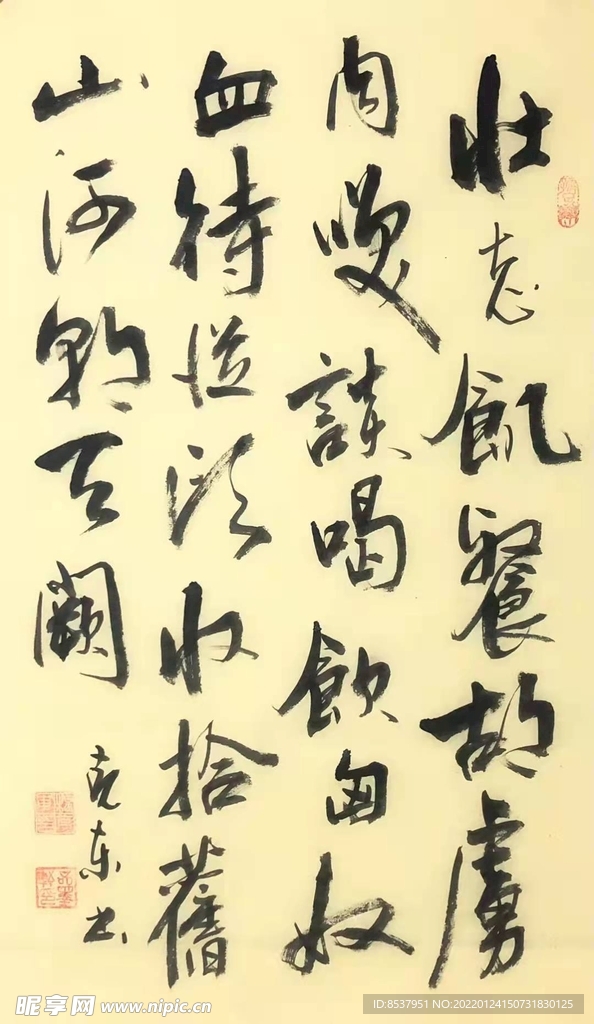 壯志飢餐胡虜
肉笑談喝飲匈奴
血待從頭收拾舊
山河朝天闕
克东书
昵享网 www.nipic.cn
ID:8537951 NO:20220124150731830125